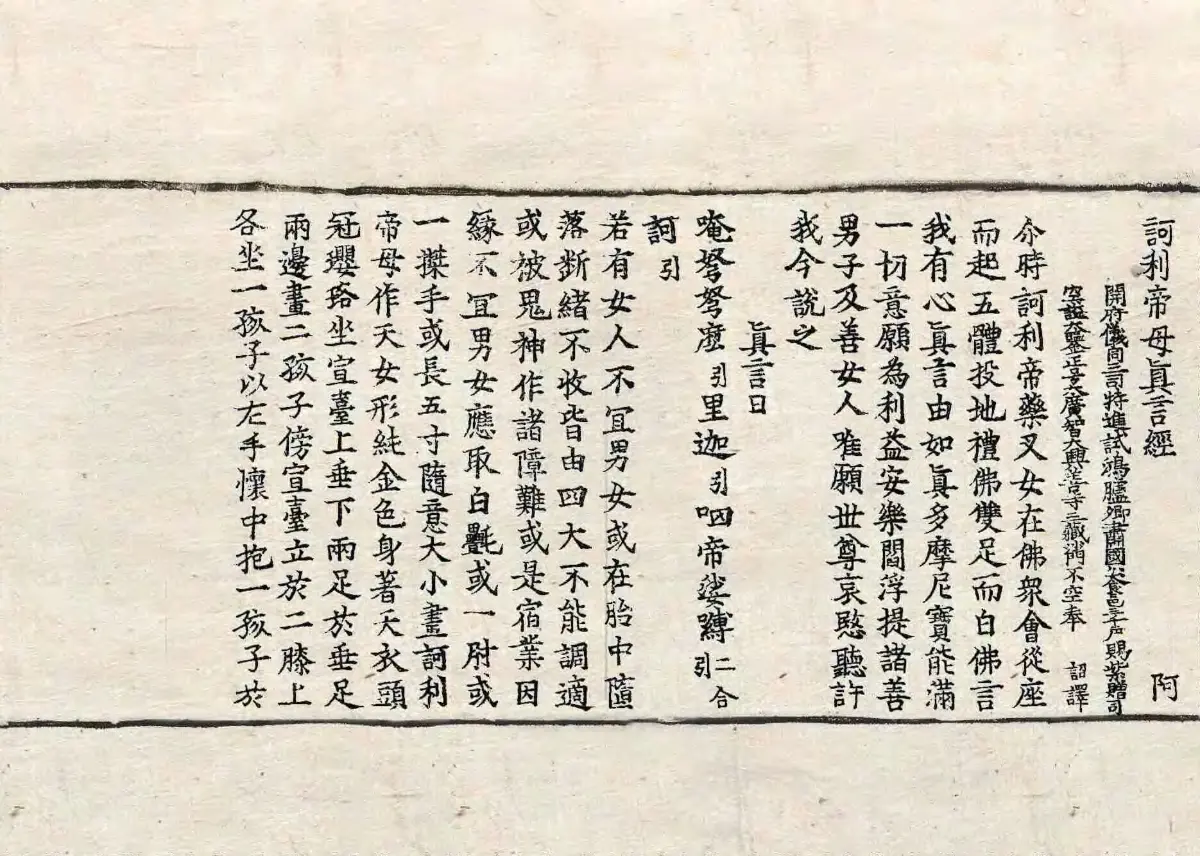 訶利帝母眞言經　阿
開府儀同三司特進試鴻臚卿肅國公食邑三千戶賜紫贈司
空謚大鑒正号大廣智大興善寺三藏沙門不空奉　詔譯
尒時訶利帝藥叉女在佛衆會從座
而起五體投地禮佛雙足而白佛言
我有心眞言由如眞多摩尼寶能滿
一切意願為利益安樂閻浮提諸善
男子及善女人唯願世尊哀愍聽許
我今說之
眞言曰
唵弩弩麼引里迦引呬帝娑嚩二合引
訶引
若有女人不冝男女或在胎中墮
落斷緒不收皆由四大不能調適
或被鬼神作諸障難或是宿業因
緣不冝男女應取白㲲或一尉或
一搩手或長五寸隨意大小畫訶利
帝母作天女形純金色身著天衣頭
冠瓔珞坐宣臺上垂下兩足於垂足
兩邊畫二孩子傍宣臺立於二膝上
各坐一孩子以左手懷中抱一孩子於